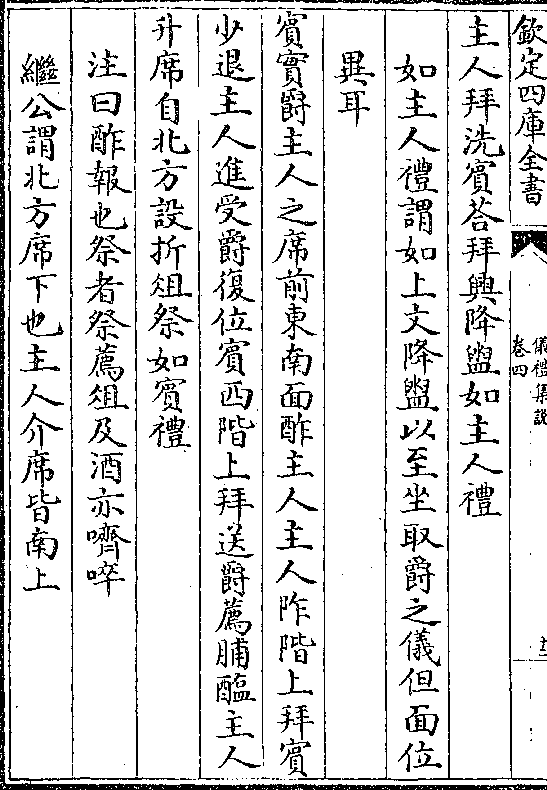 欽定四庫全書
儀禮集說
卷四
主人拜洗賓荅拜興降盥如主人禮
如主人禮謂如上文降盥以至坐取爵之儀但面位
異耳
賓實爵主人之席前東南面酢主人主人阼階上拜賓
少退主人進受爵復位賓西階上拜送爵薦脯醢主人
升席自北方設折俎祭如賓禮
注曰酢報也祭者祭薦俎及酒亦嚌啐
繼公謂北方席下也主人介席皆南上